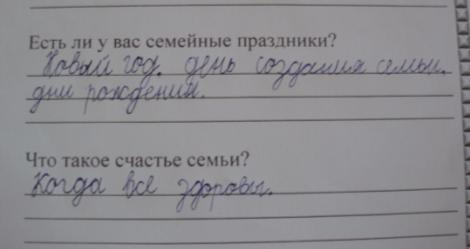 Есть ли у вас семейные праздники?
Новый год. день создания семьи.
дни рождения.
Что такое счастье семьи?
Когда все здоровы.